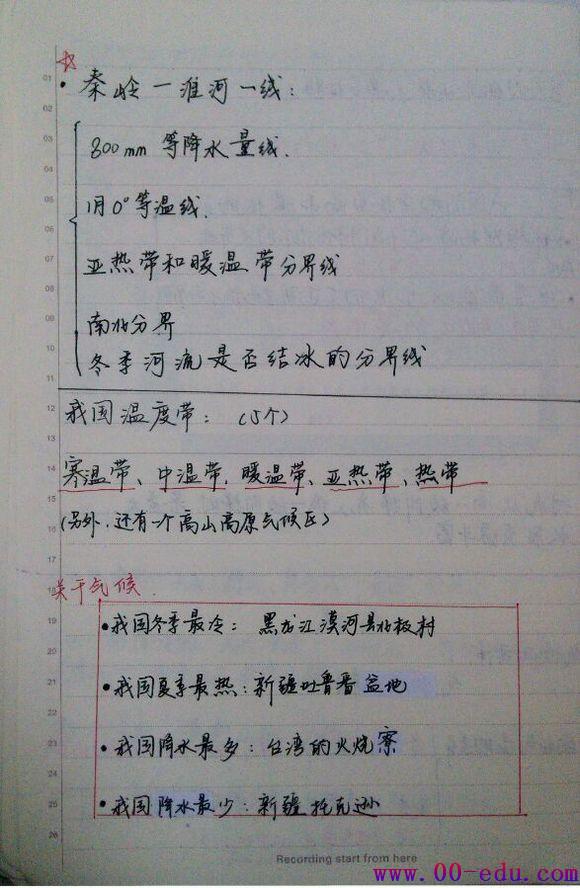 秦岭一淮河一线:
800mm 等降水量线.
1月0°等温线.
亚热带和暖温带分界线
南北分界
冬季河流是否结冰的分界线
我国温度带: (5个)
寒温带、中温带、暖温带、亚热带、热带
(另外,还有一个高山高原气候区)
关于气候.
•我国冬季最冷: 黑龙江漠河县北极村
•我国夏季最热:新疆吐鲁番盆地
•我国降水最多:台湾的火烧寮
•我国降水最少:新疆托克逊
Recording start from here
www.00-edu.com